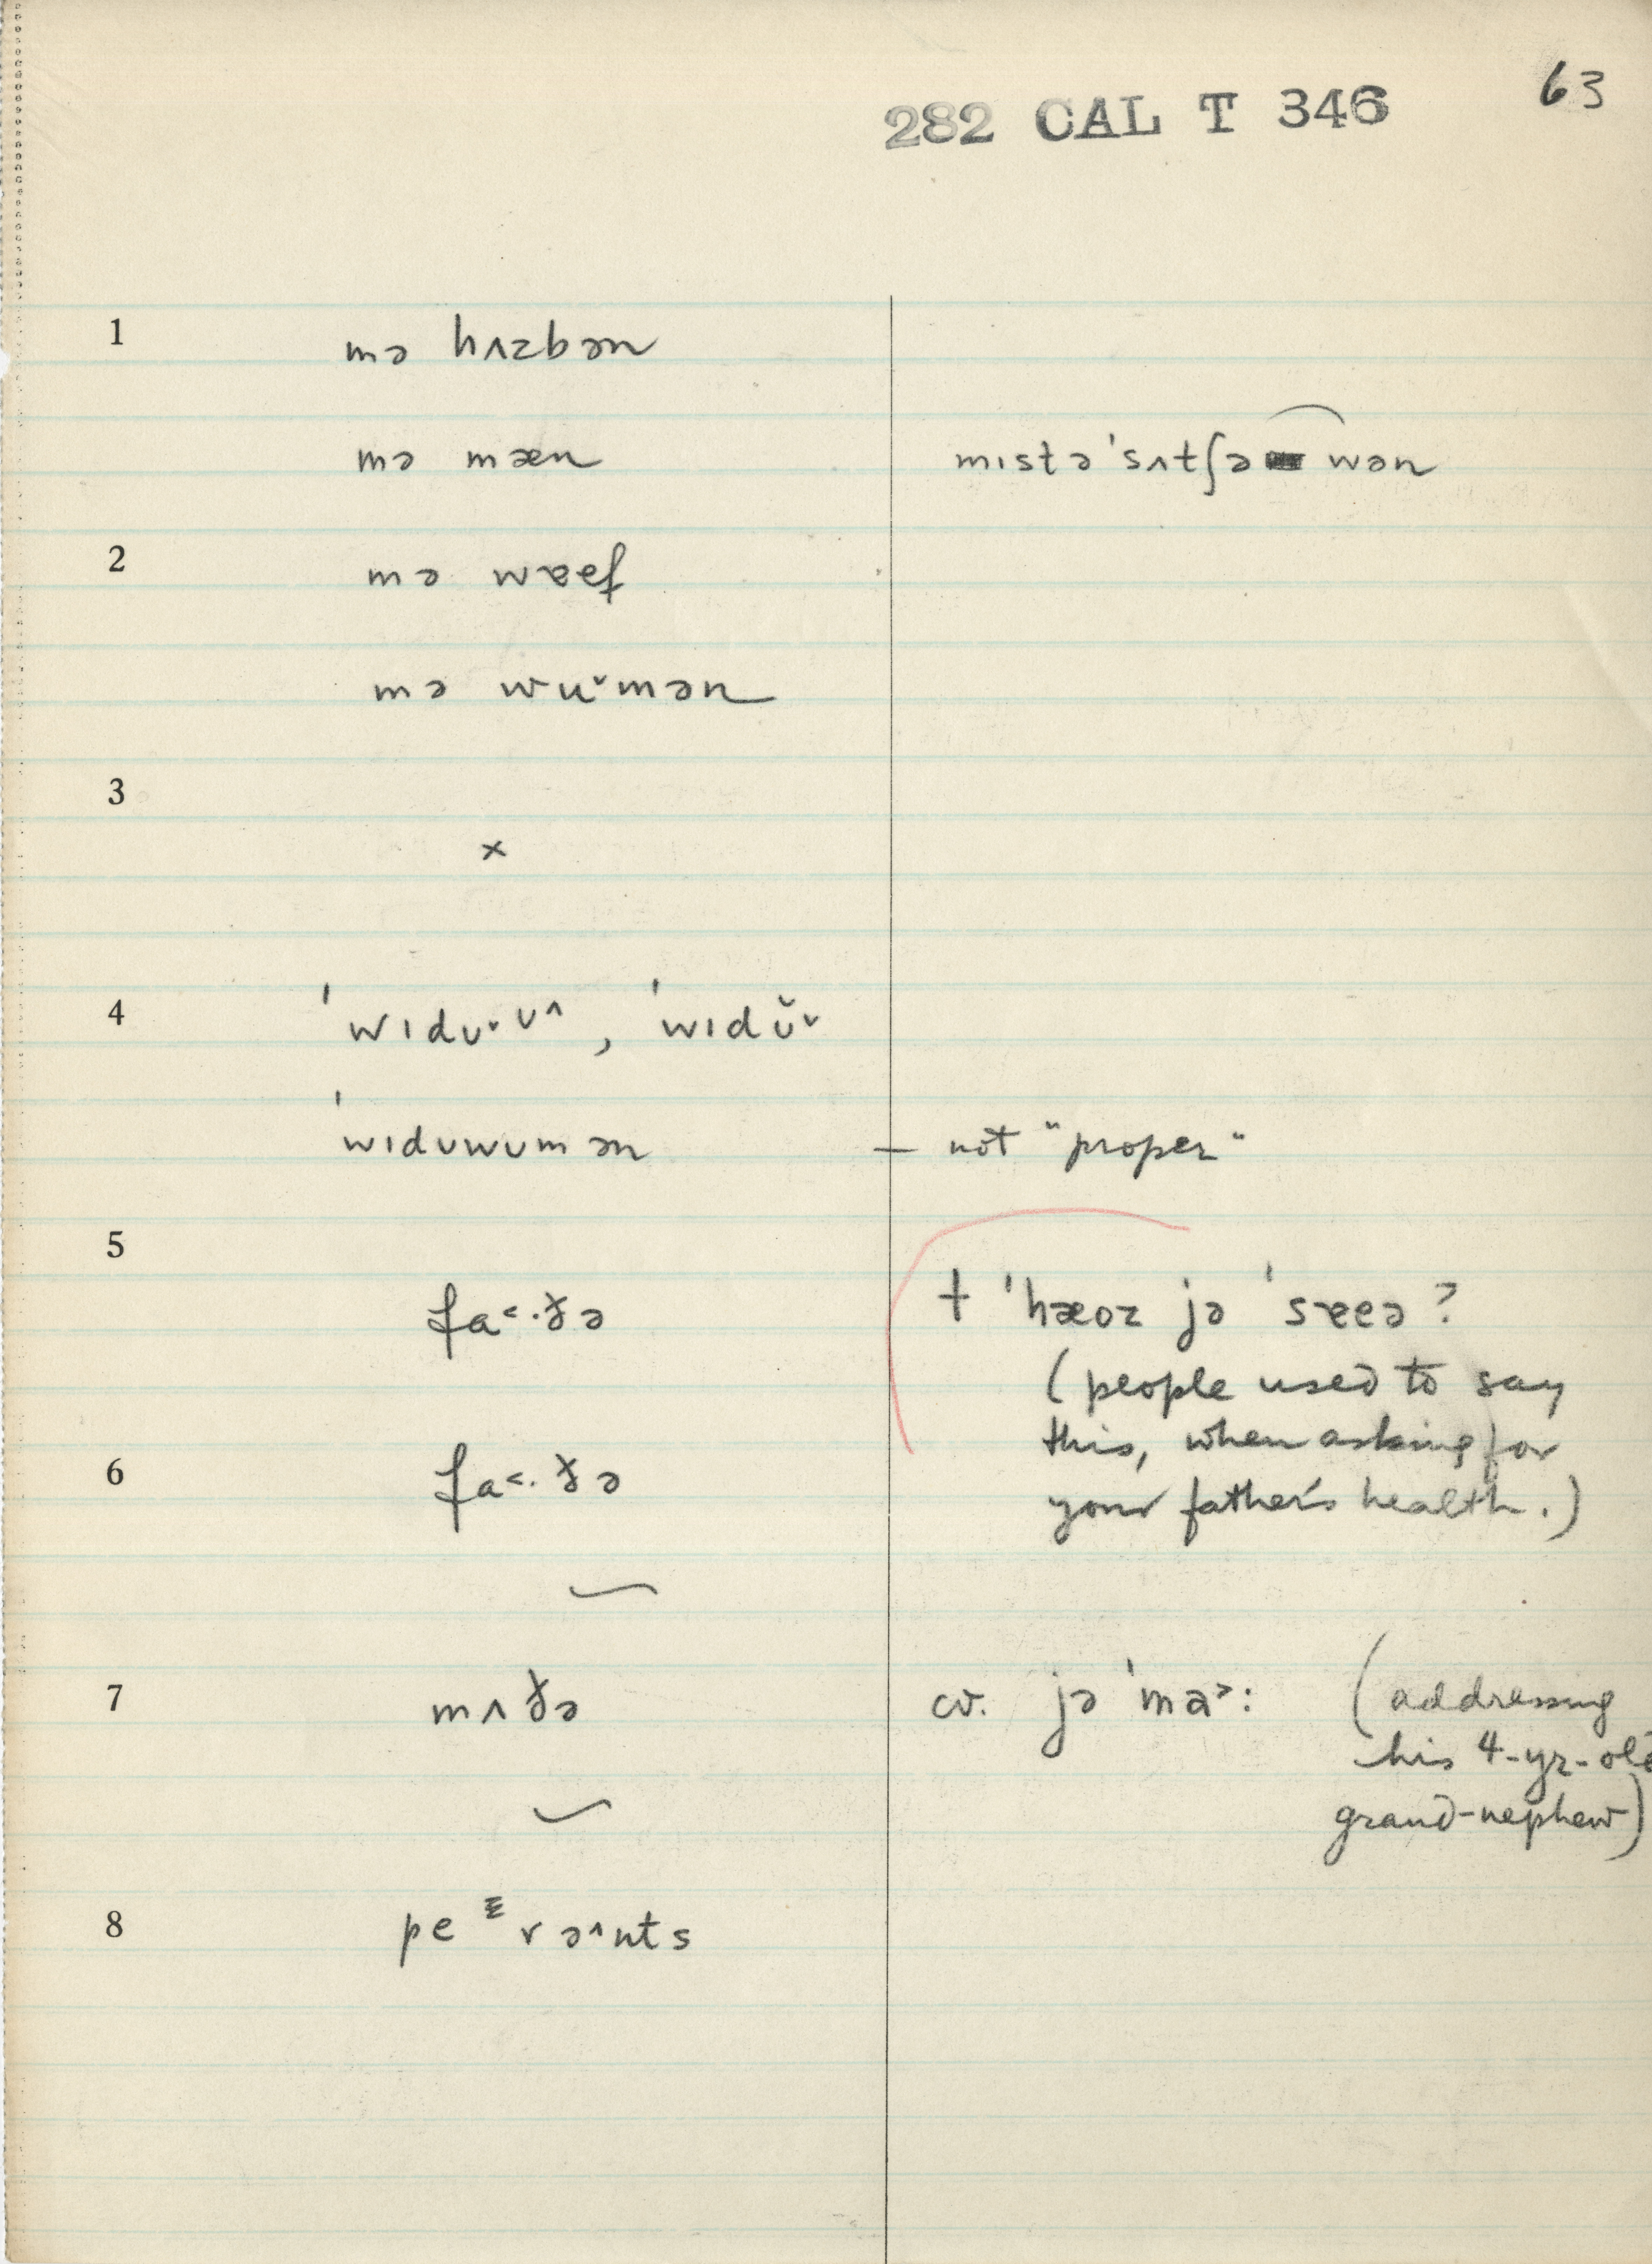 63
282 CAL T 346
1
mə hʌzbən
mə mæn
mɪstə ˈsʌtʃə wən
2
mə wɐef
mə wu˅mən
3
×
4
ˈwɪdʊ˅ʊ^, ˈwɪdʊ̆˅
ˈwɪdʊwʊmən
— not "proper"
5
fa<·ðə
† ˈhæoz jə ˈsɐeə?
(people used to say
this, when asking for
your father's health.)
6
fa<·ðə
7
mʌðə
cv. jə ˈma>: (addressing
his 4-yr-old
grand-nephew)
8
pe r ə^nts